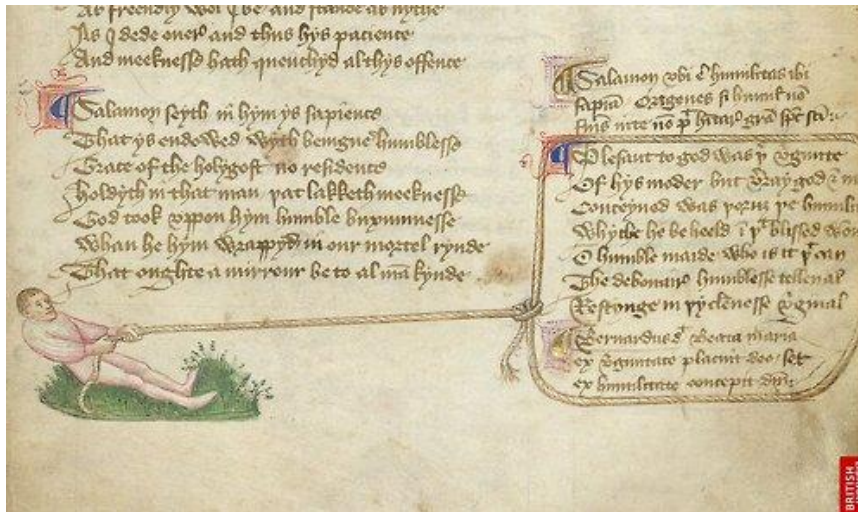 As freendly wol I be and stande as nyghe
As I dede evere and thus hys pacience
And meeknesse hath quenchyd al thys offence
Salamon seyth in hym ys sapience
That ys endowed wyth benigne humblesse
Grace of the holygost no residence
Holdyth in that man þat lakketh meeknesse
God took vppon hym humble buxumnesse
Whan he hym wrappyd in our mortel rynde
That oughte a mirrour be to al mākynde
Salamon vbi ē humilitas ibi
sapiā Origenes si humil nō
Plesant to god was þe
Of hys moder but god
Conceyued was þe
Why the he beheeld ī þt blissed
O humble maide who is it þt can
The debonair humblesse tellen al
Restynge in þy clennesse
Bernardus beata maria
ex placuit deo set
ex humilitate concepit
BRITISH